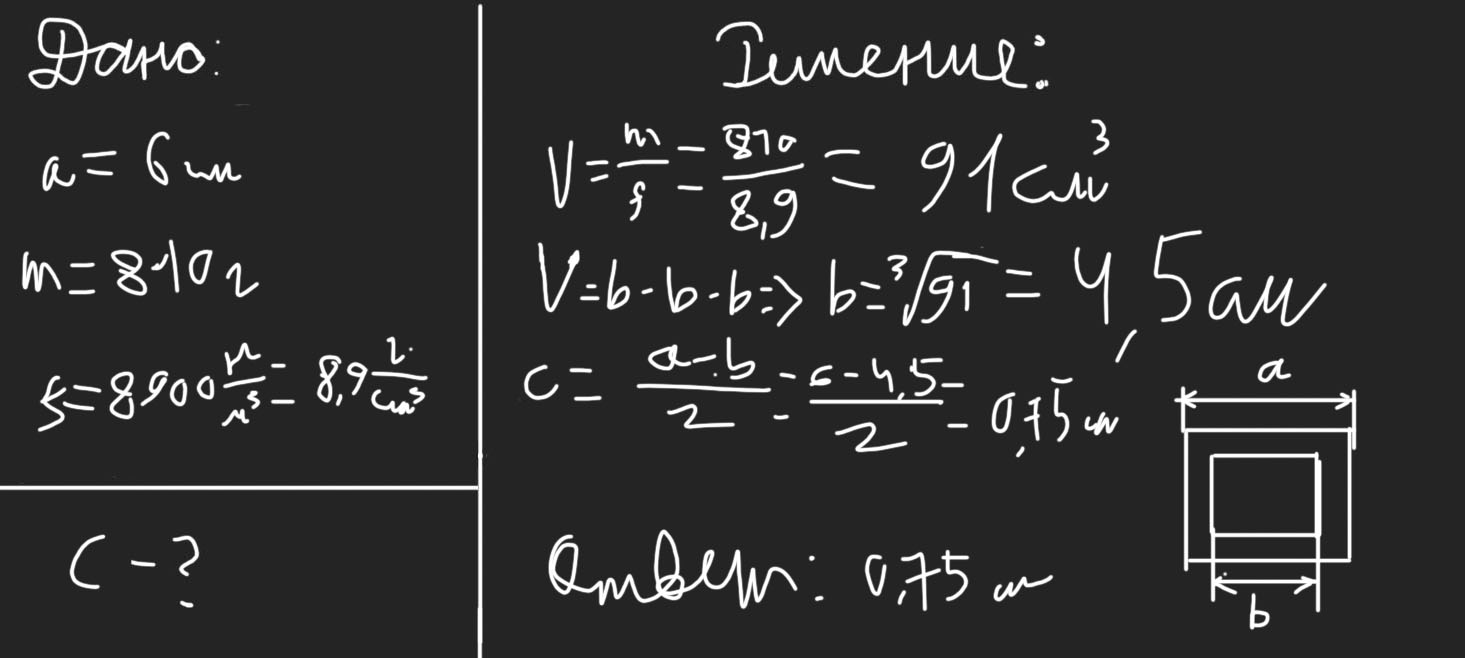 Дано:
a = 6 см
m = 810 г
ρ = 8900 кг/м³ = 8,9 г/см³
C - ?
Решение:
V = m/ρ = 810/8,9 = 91 см³
V = b · b · b => b = ³√91 = 4,5 см
c = (a - b)/2 = (6 - 4,5)/2 = 0,75 см
Ответ: 0,75 см
a
b